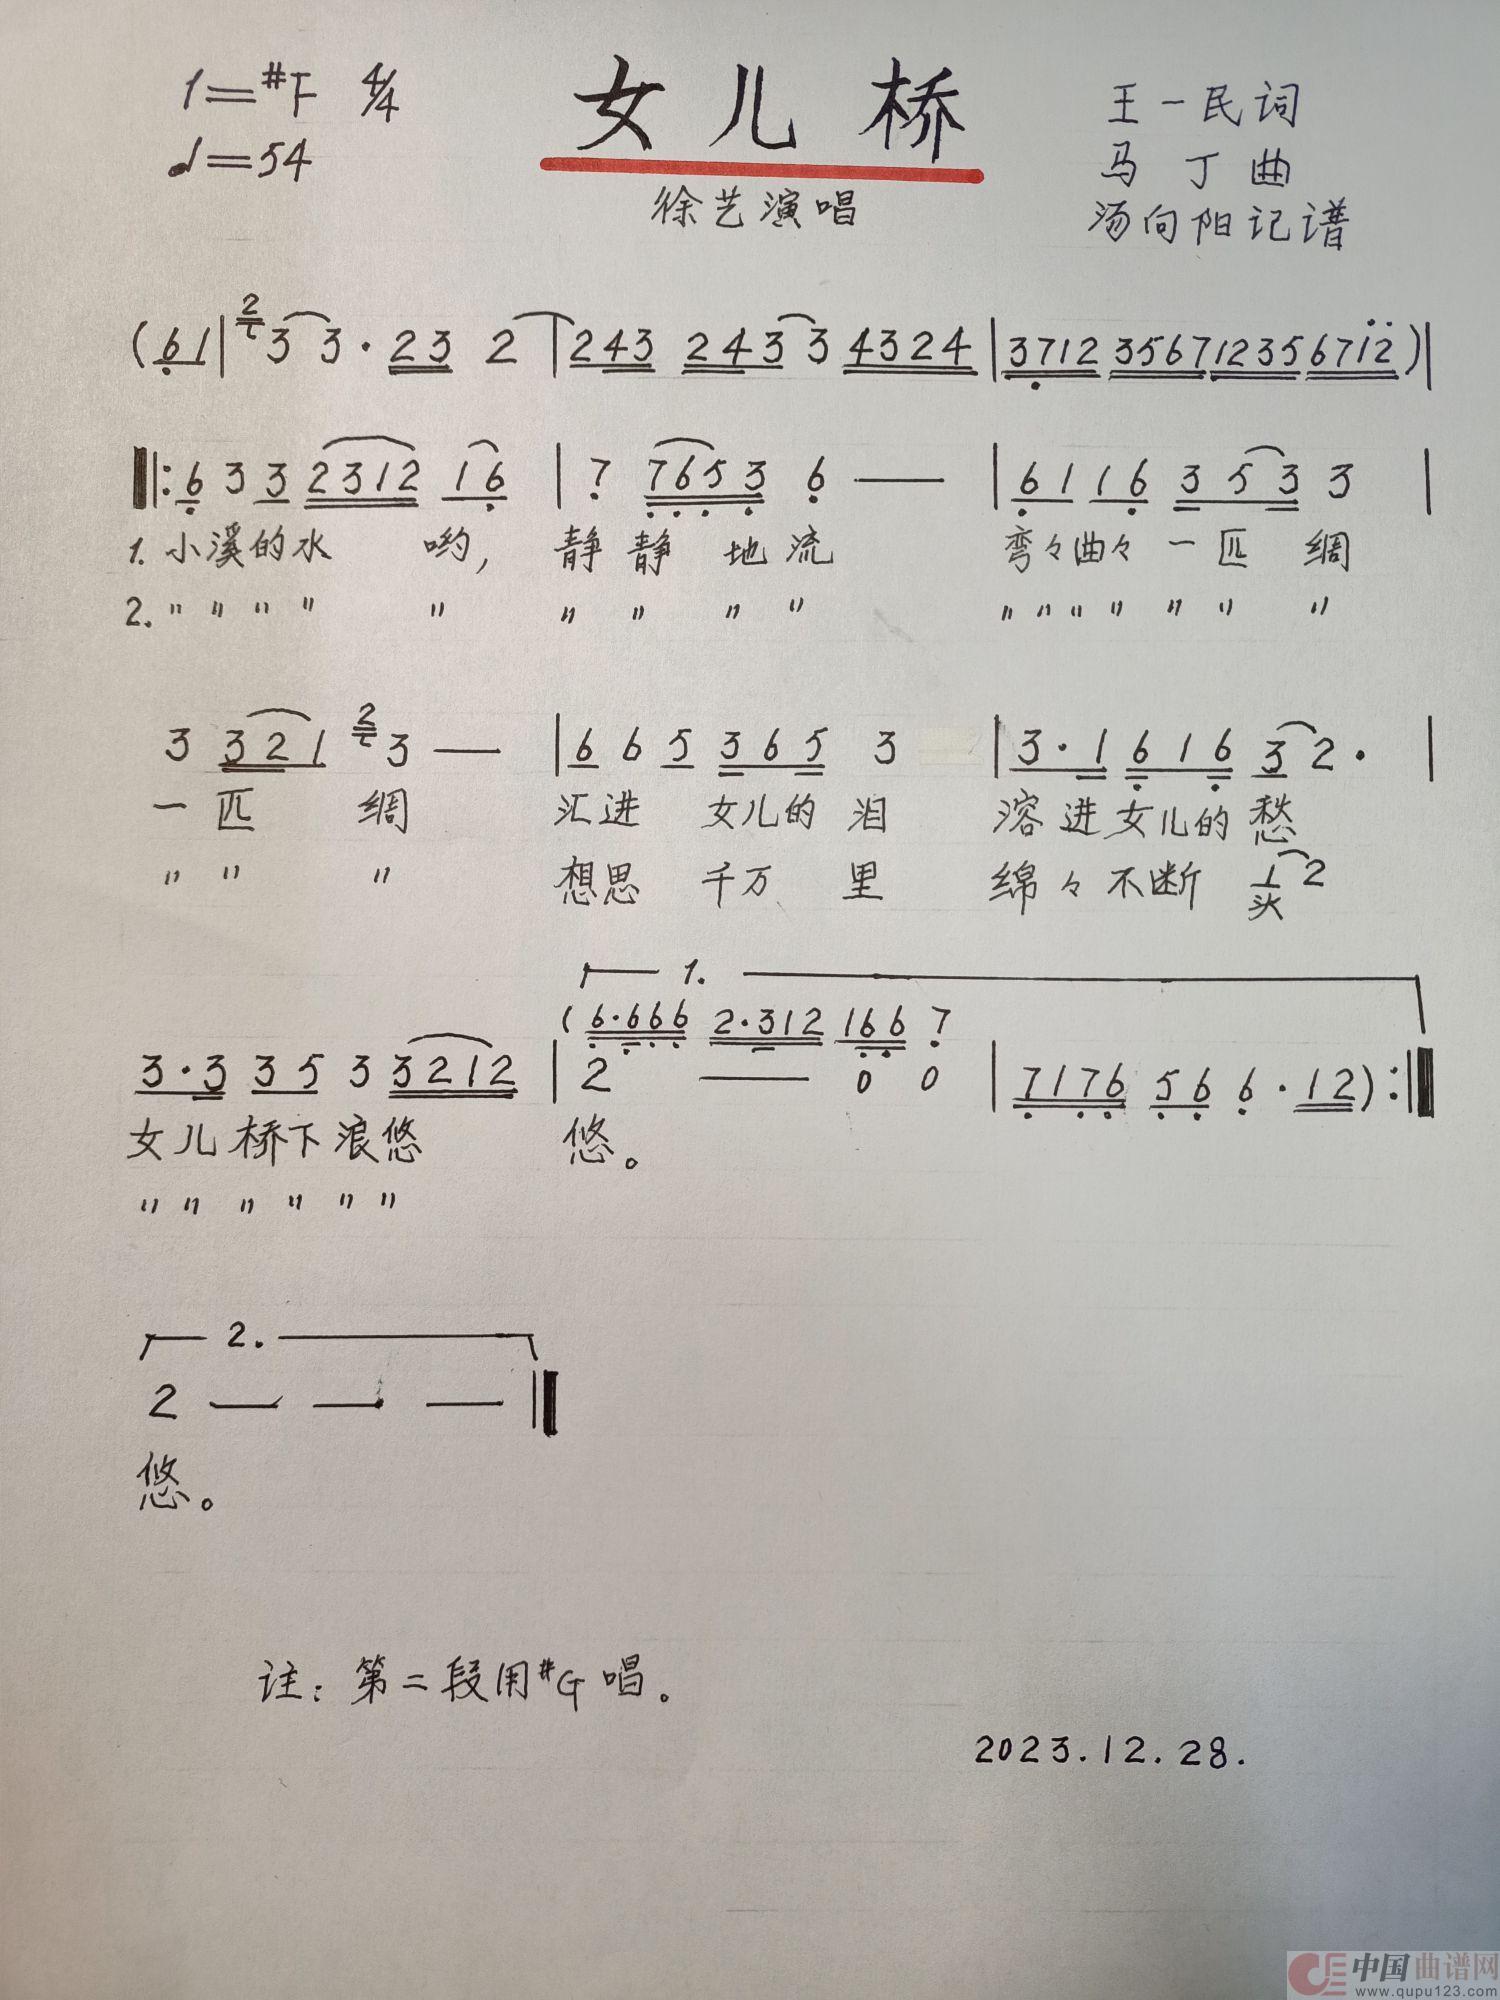 1=#F 4/4
♩=54
女儿桥
徐艺演唱
王一民词
马丁曲
汤向阳记谱
(61|2 3 3·23 2|243 2433 4324|3712 3567 1235 6712)|
‖:6 3 3 2312 16|7 7653 6 —|61 16 3 5 3 3|
1.小溪的水 哟，静静地流 弯々曲々一匹绸
2.〃〃〃〃 〃 〃〃〃〃 〃〃〃〃〃〃〃
3 321 2 3 —|6 6 5 365 3|3·1 616 3 2·|
一匹 绸 汇进 女儿的泪 溶进女儿的愁
〃〃 〃 想思 千万里 绵々不断 1 2
头
1.
(6·666 2·312 166 7
3·3 35 3 3212|2 — 0 0|7176 56 6·12):‖
女儿桥下浪悠 悠。
〃〃〃〃〃〃
2.
2 — — —‖
悠。
注：第二段用#G唱。
2023.12.28.
中国曲谱网
www.qupu123.com